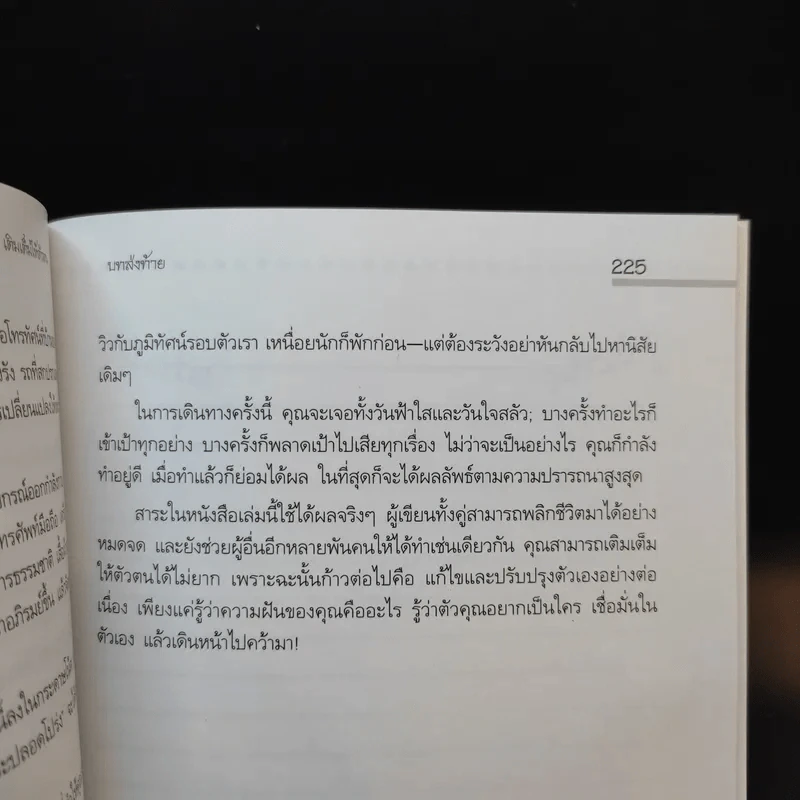 บทส่งท้าย
225
วิวกับภูมิทัศน์รอบตัวเรา เหนื่อยนักก็พักก่อน—แต่ต้องระวังอย่าหันกลับไปหานิสัย
เดิมๆ
ในการเดินทางครั้งนี้ คุณจะเจอทั้งวันฟ้าใสและวันใจสลัว; บางครั้งทำอะไรก็
เข้าเป้าทุกอย่าง บางครั้งก็พลาดเป้าไปเสียทุกเรื่อง ไม่ว่าจะเป็นอย่างไร คุณก็กำลัง
ทำอยู่ดี เมื่อทำแล้วก็ย่อมได้ผล ในที่สุดก็จะได้ผลลัพธ์ตามความปรารถนาสูงสุด
สาระในหนังสือเล่มนี้ใช้ได้ผลจริงๆ ผู้เขียนทั้งคู่สามารถพลิกชีวิตมาได้อย่าง
หมดจด และยังช่วยผู้อื่นอีกหลายพันคนให้ได้ทำเช่นเดียวกัน คุณสามารถเติมเต็ม
ให้ตัวตนได้ไม่ยาก เพราะฉะนั้นก้าวต่อไปคือ แก้ไขและปรับปรุงตัวเองอย่างต่อ
เนื่อง เพียงแค่รู้ว่าความฝันของคุณคืออะไร รู้ว่าตัวคุณอยากเป็นใคร เชื่อมั่นใน
ตัวเอง แล้วเดินหน้าไปคว้ามา!